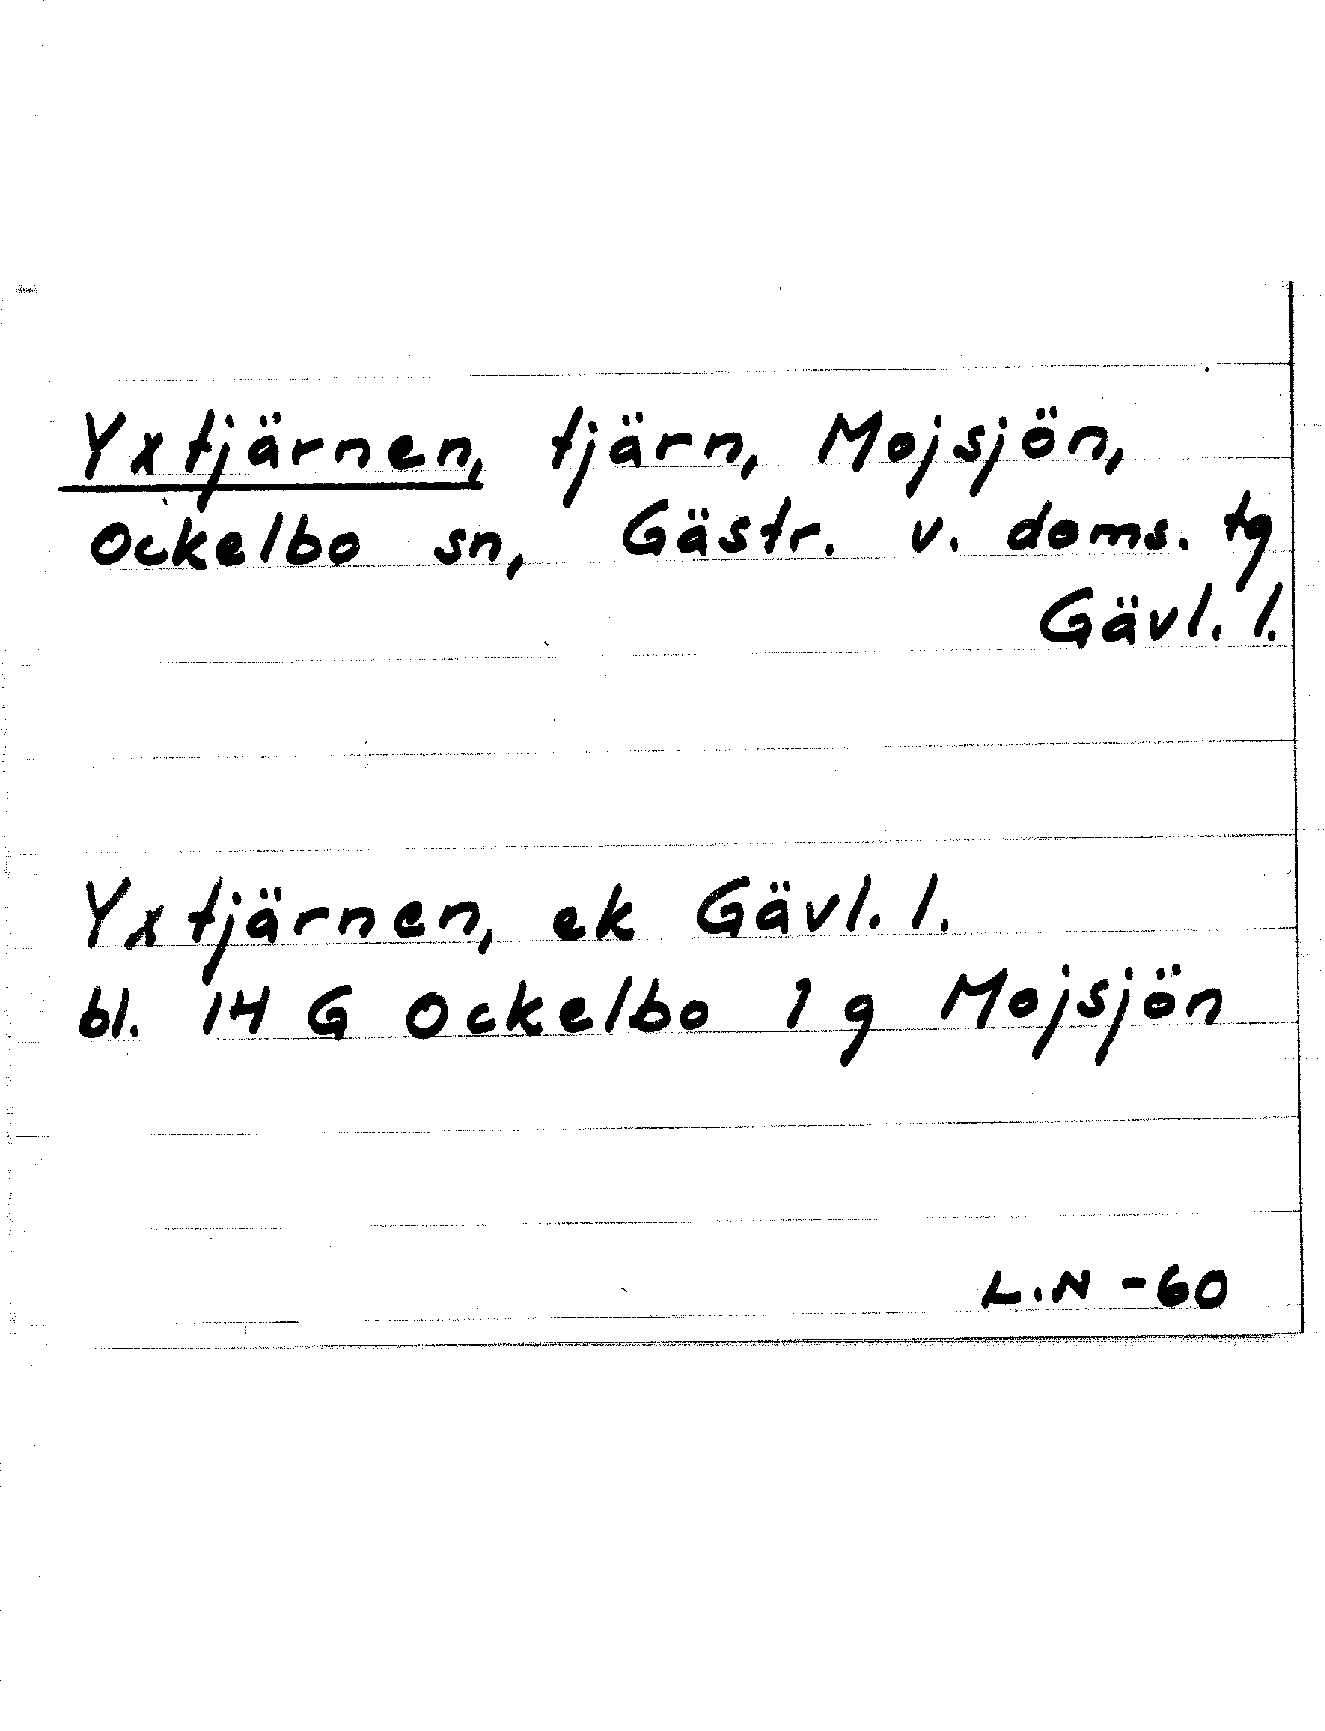 Yxtjärnen, tjärn, Mojsjön,
Ockelbo sn, Gästr. v. doms. tg
Gävl. l.
Yxtjärnen, ek Gävl. l.
bl. 14 G Ockelbo 1 g Mojsjön
L.N -60